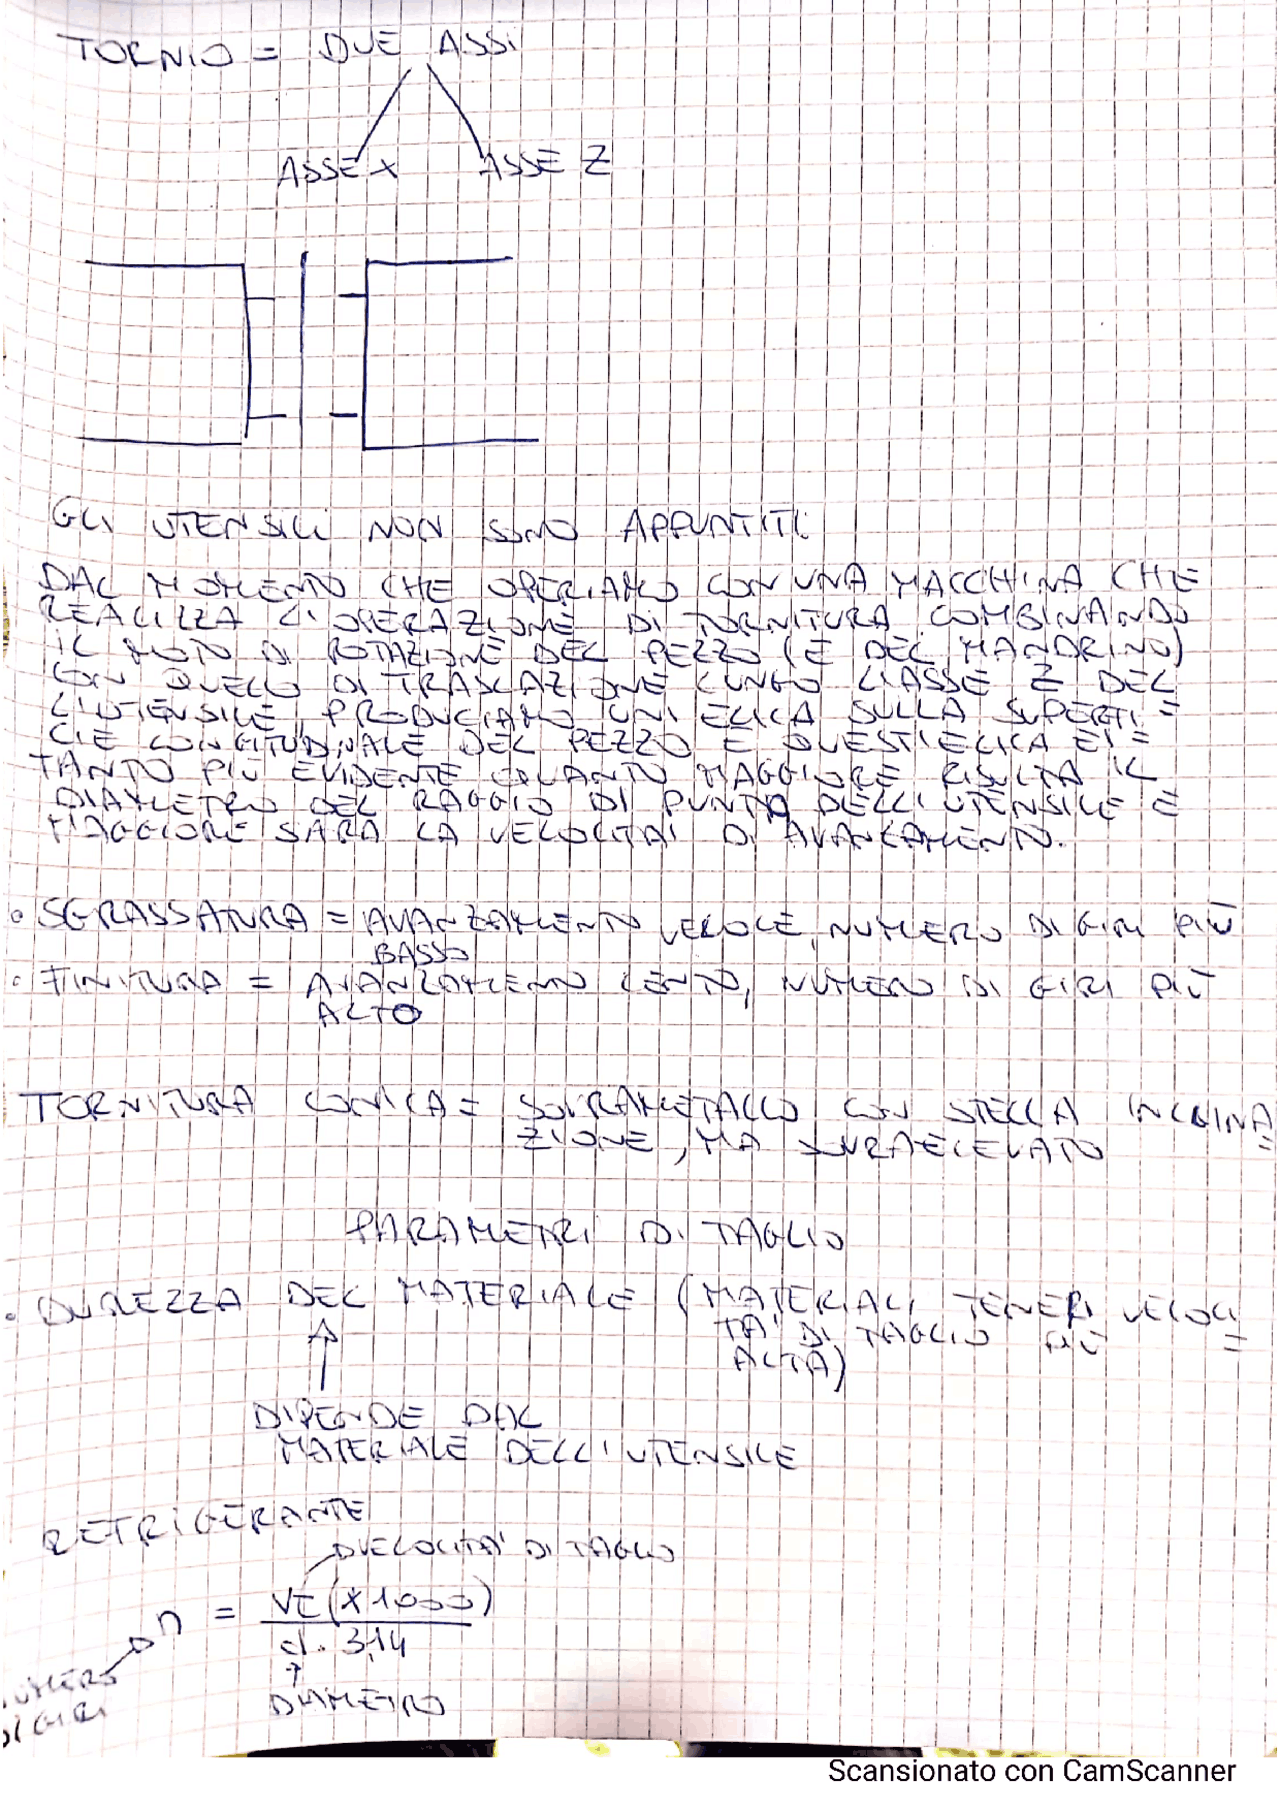 TORNIO = DUE ASSI
ASSE X ASSE Z
GLI UTENSILI NON SONO APPUNTITI
DAL MOMENTO CHE OPERIAMO CON UNA MACCHINA CHE
REALIZZA L'OPERAZIONE DI TORNITURA COMBINANDO
IL MOTO DI ROTAZIONE DEL PEZZO (E DEL MANDRINO)
CON QUELLO DI TRASLAZIONE LUNGO L'ASSE Z DEL
L'UTENSILE, PRODUCIAMO UN'ELICA SULLA SUPERFI=
CIE LONGITUDINALE DEL PEZZO E QUEST'ELICA E'=
TANTO PIÙ EVIDENTE QUANTO MAGGIORE RISULTA IL
DIAMETRO DEL RAGGIO DI PUNTO DELL'UTENSILE E
MAGGIORE SARÀ LA VELOCITA' DI AVANZAMENTO.
• SGRASSATURA = AVANZAMENTO VELOCE, NUMERO DI GIRI PIÙ
BASSO
• FINITURA = AVANZAMENTO LENTO, NUMERO DI GIRI PIÙ
ALTO
TORNITURA CONICA = SOVRAMETALLO CON STELLA INCLINA=
ZIONE, MA SOVRAELEVATO
PARAMETRI DI TAGLIO
• DUREZZA DEL MATERIALE (MATERIALI TENERI VELOCI=
TA' DI TAGLIO PIÙ
ALTA)
DIPENDE DAL
MATERIALE DELL'UTENSILE
REFRIGERANTE
VELOCITA' DI TAGLIO
n = VT (x1000)
d. 3,14
NUMERO
DI GIRI
DIAMETRO
Scansionato con CamScanner